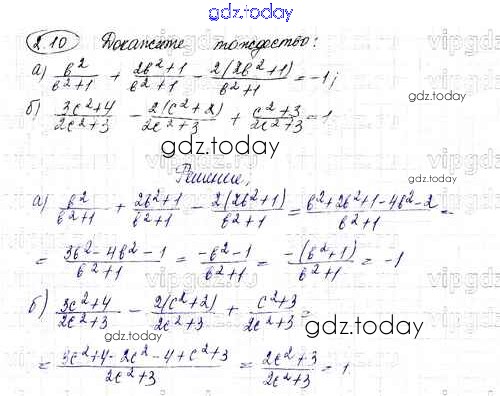 gdz.today
2.10 Докажите тождество:
а) в²/в²+1 + 2в²+1/в²+1 - 2(2в²+1)/в²+1 = -1;
б) 3c²+4/2c²+3 - 2(c²+2)/2c²+3 + c²+3/2c²+3 = 1
gdz.today
gdz.today
Решение,
а) в²/в²+1 + 2в²+1/в²+1 - 2(2в²+1)/в²+1 = в²+2в²+1-4в²-2/в²+1 =
= 3в²-4в²-1/в²+1 = -в²-1/в²+1 = -(в²+1)/в²+1 = -1
б) 3c²+4/2c²+3 - 2(c²+2)/2c²+3 + c²+3/2c²+3 =
gdz.today
gdz.today
= 3c²+4-2c²-4+c²+3/2c²+3 = 2c²+3/2c²+3 = 1